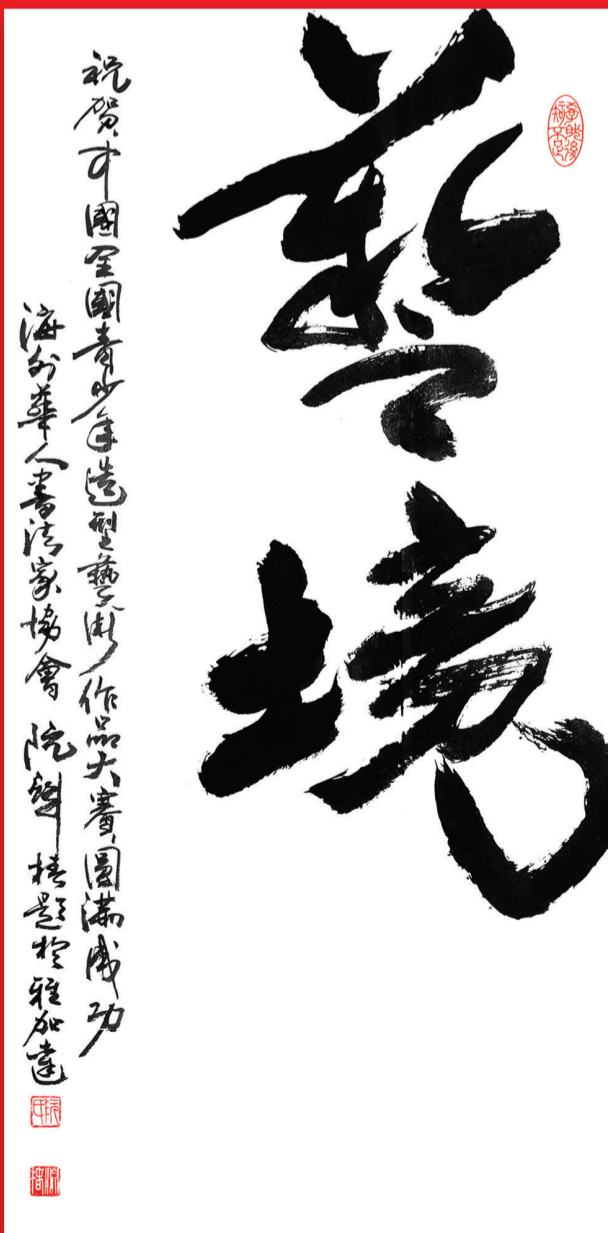 學然後知不足
藝境
祝賀中國全國青少年造型藝術作品大賽圓滿成功
海外華人書法家協會 阮淵椿題於雅加達